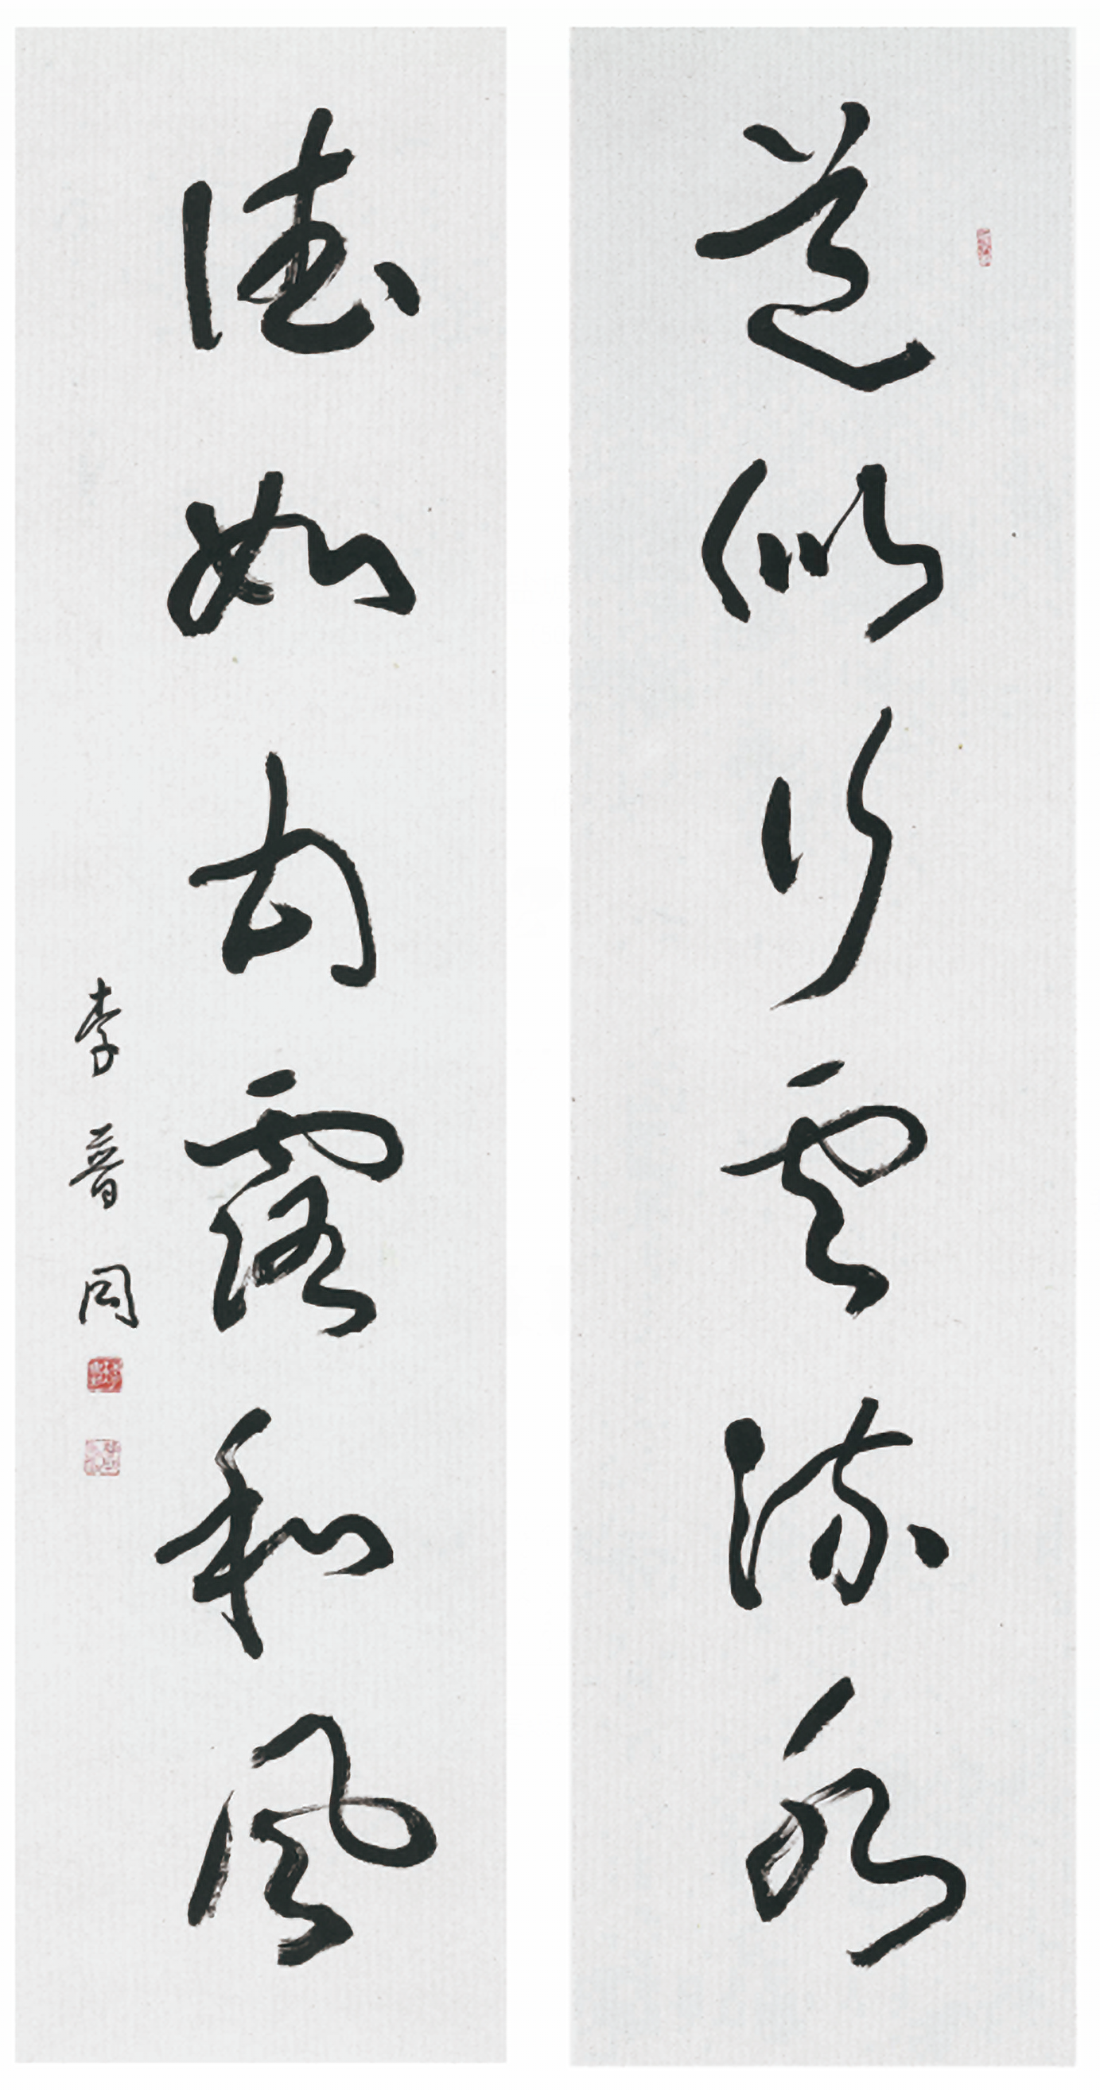 道似行雲流水
德如甘露和風
李普同